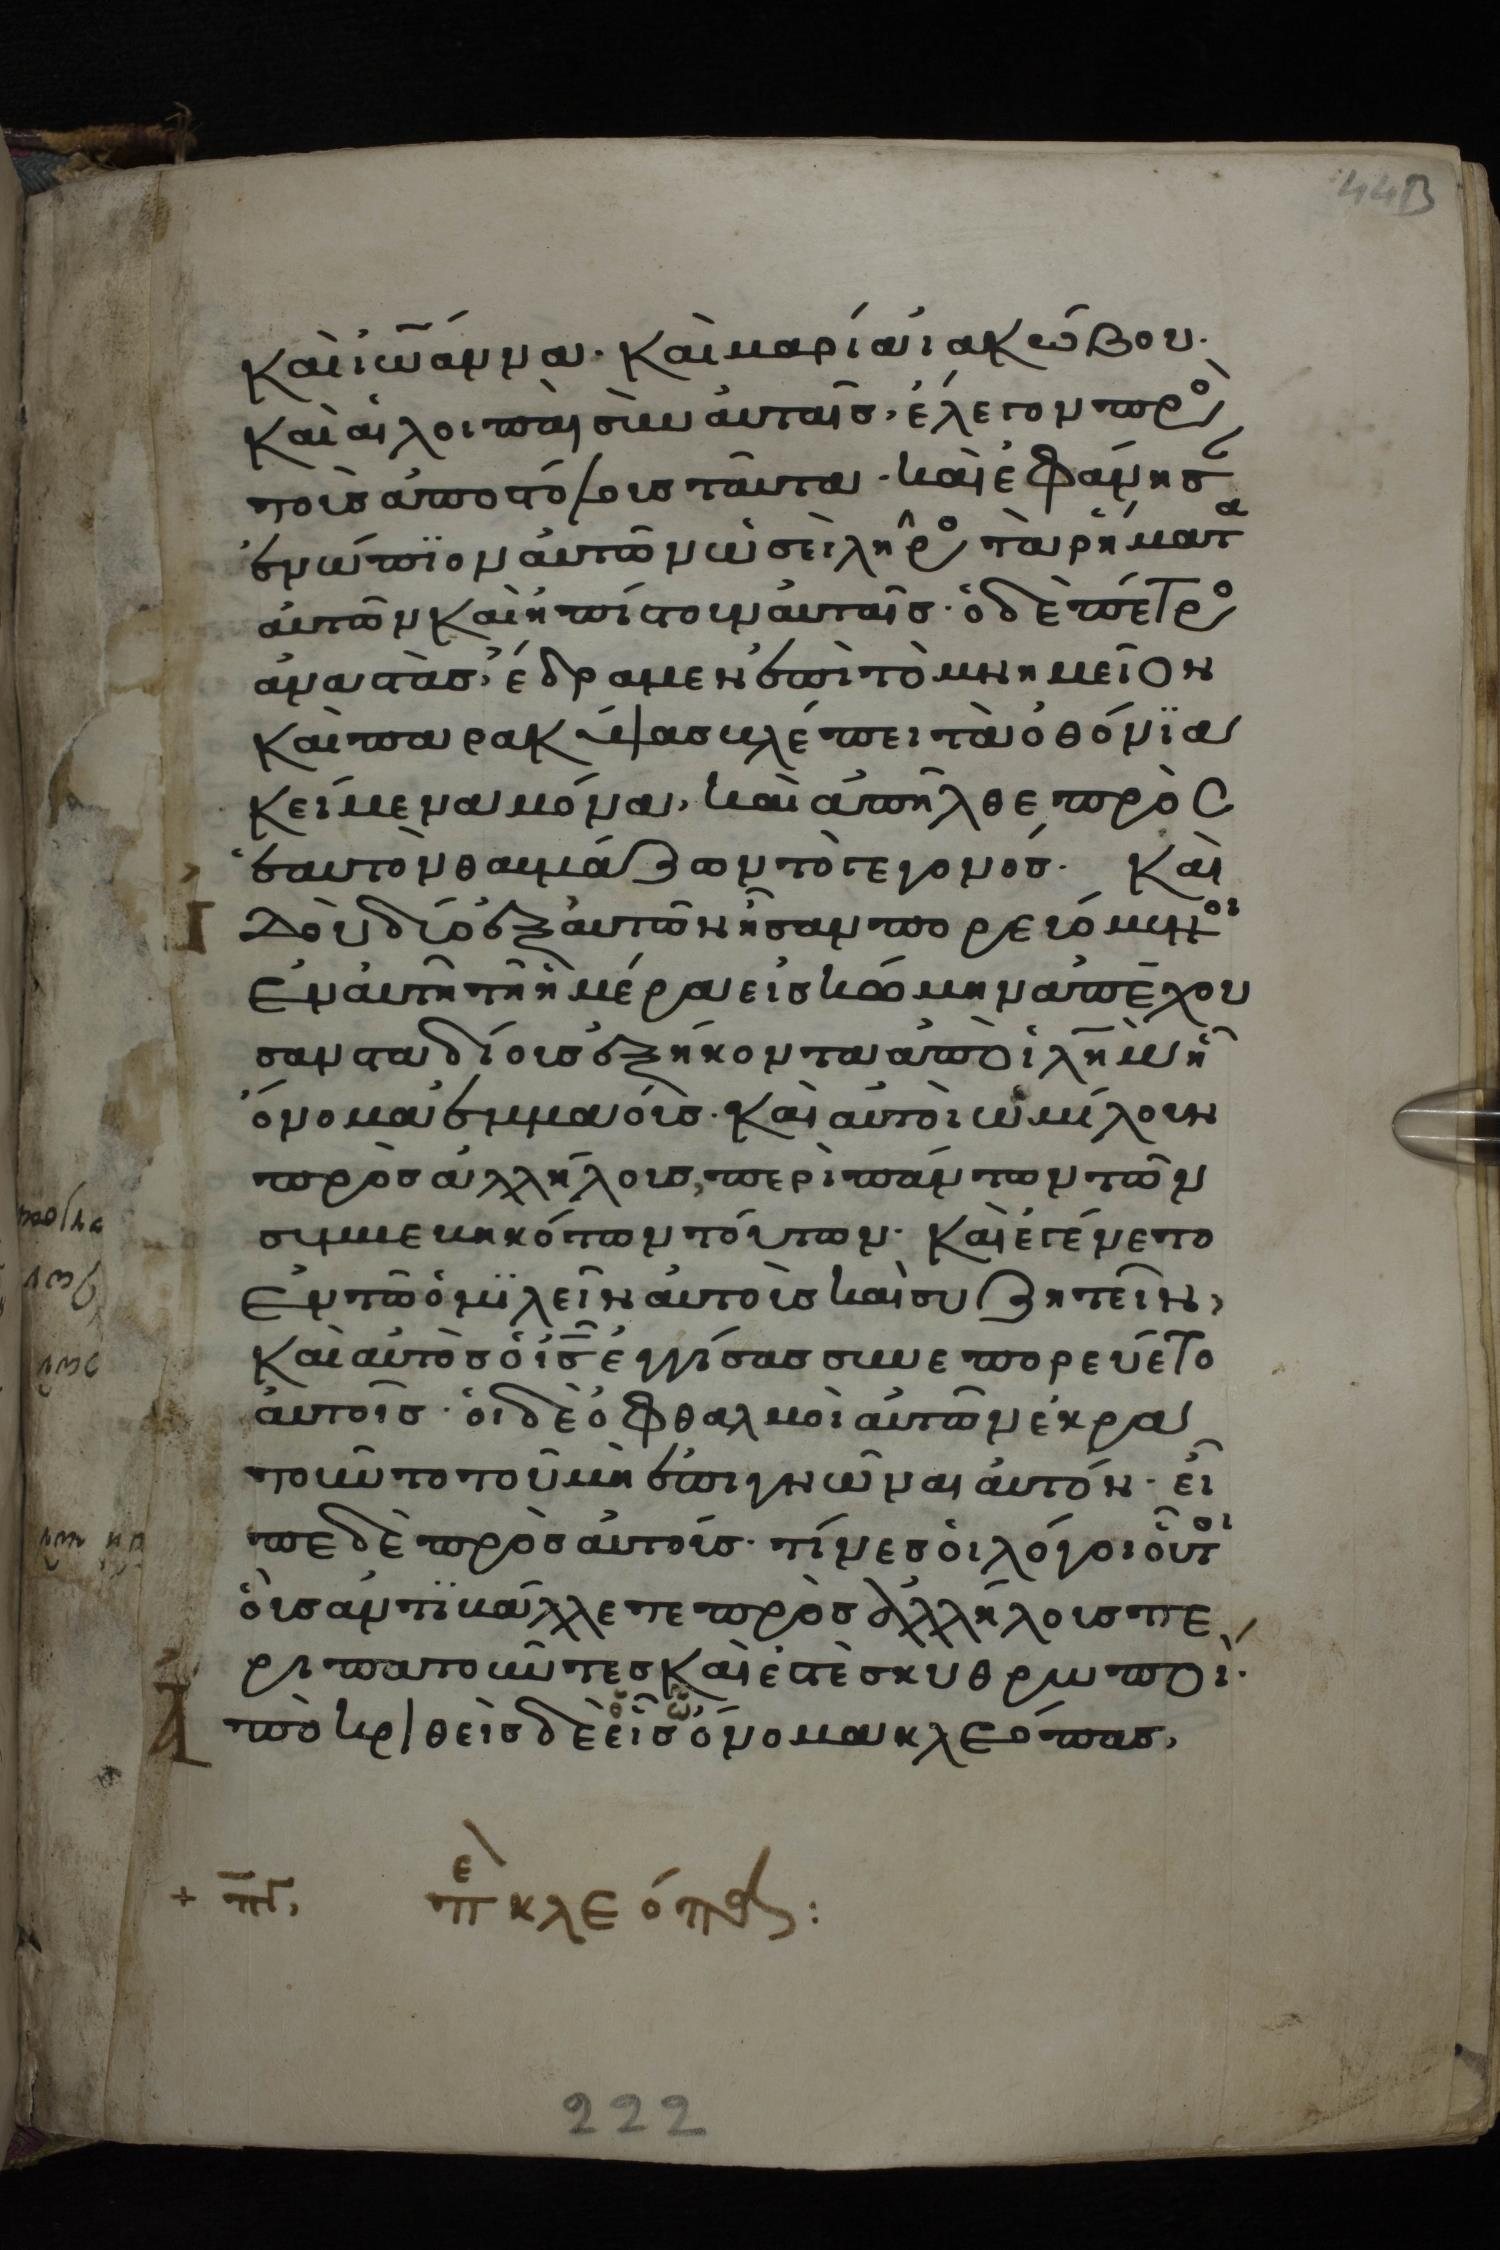 44B
καὶ ἰωάννα· καὶ μαρία ἰακώβου·
καὶ αἱ λοιπαὶ σὺν αὐταῖς, ἔλεγον πρὸ
τοὺς ἀποστόλους ταῦτα· καὶ ἐφάνησ
ἐνώπϊον αὐτῶν ὡσεὶ λῆρο τὰ ῥήματα
αὐτῶν καὶ ἠπίστουν αὐταῖς· ὁ δὲ πέτρο
ἀναστὰς, ἔδραμεν ἐπὶ τὸ μνημεῖον
καὶ παρακύψας βλέπει τὰ ὀθόνϊα
κείμενα μόνα, καὶ ἀπῆλθε πρὸς
ἑαυτὸν θαυμάζων τὸ γεγονός· Καὶ
Ἰδοὺ δύο ἐξ αὐτῶν ἦσαν πορευόμενοι
ἐν αὐτῇ τῇ ἡμέρα εἰς κώμην ἀπέχου
σαν σταδίους ἑξήκοντα ἀπὸ ἱλὴμ ᾗ
ὄνομα ἐμμαούς· καὶ αὐτοὶ ὡμίλουν
πρὸς ἀλλήλους, περὶ πάντων τῶν
συμβεβηκότων τούτων· καὶ ἐγένετο
ἐν τῶ ὁμϊλεῖν αὐτοὺς καὶ συζητεῖν,
καὶ αὐτὸς ὁ ἰς ἐγγίσας συνεπορεύετο
αὐτοῖς· οἱ δὲ ὀφθαλμοὶ αὐτῶν ἐκρα
τοῦντο τοῦ μὴ ἐπιγνῶναι αὐτόν· εἶ
πε δὲ πρὸς αὐτούς· τίνες οἱ λόγοι οὗτοι
οὓς ἀντϊβάλλετε πρὸς ἀλλήλους πε
ριπατοῦντες καὶ ἐστὲ σκυθρωποί·
Ἀποκριθεὶς δὲ εἷς ὄνομα κλεόπας,
ὃ ὧ
+ πγ, ἐπ κλεόπας:
222